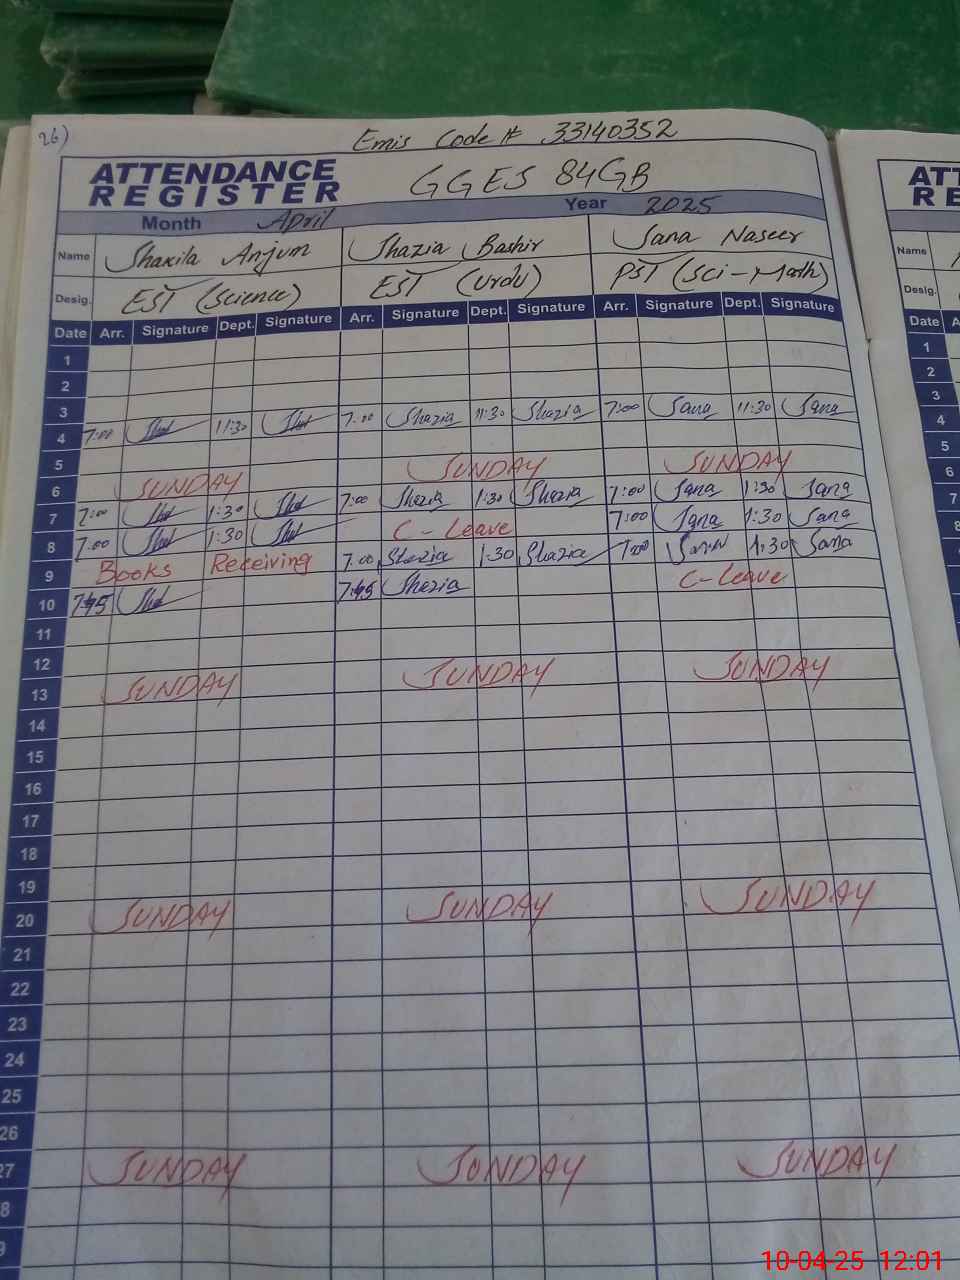 26)
Emis Code # 33140352
ATTENDANCE
REGISTER
GGES 84GB
Month April Year 2025
Name Shakila Anjum Shazia Bashir Sana Naseer
Desig. EST (Science) EST (Urdu) PST (Sci-Math)
Date Arr. Signature Dept. Signature Arr. Signature Dept. Signature Arr. Signature Dept. Signature
1
2
3
4 7:00 11:30 7:00 Shazia 11:30 Shazia 7:00 Sana 11:30 Sana
5
6 SUNDAY SUNDAY SUNDAY
7 7:00 1:30 7:00 Shazia 1:30 Shazia 7:00 Sana 1:30 Sana
8 7:00 1:30 C-Leave 7:00 Sana 1:30 Sana
9 Books Receiving 7:00 Shazia 1:30 Shazia 7:00 Sana 1:30 Sana
10 7:45 7:45 Shazia C-Leave
11
12
13 SUNDAY SUNDAY SUNDAY
14
15
16
17
18
19
20 SUNDAY SUNDAY SUNDAY
21
22
23
24
25
26
27 SUNDAY SUNDAY SUNDAY
8
9
ATT
RE
Name
Desig.
Date A
1
2
3
4
5
6
7
8
9
10-04-25 12:01